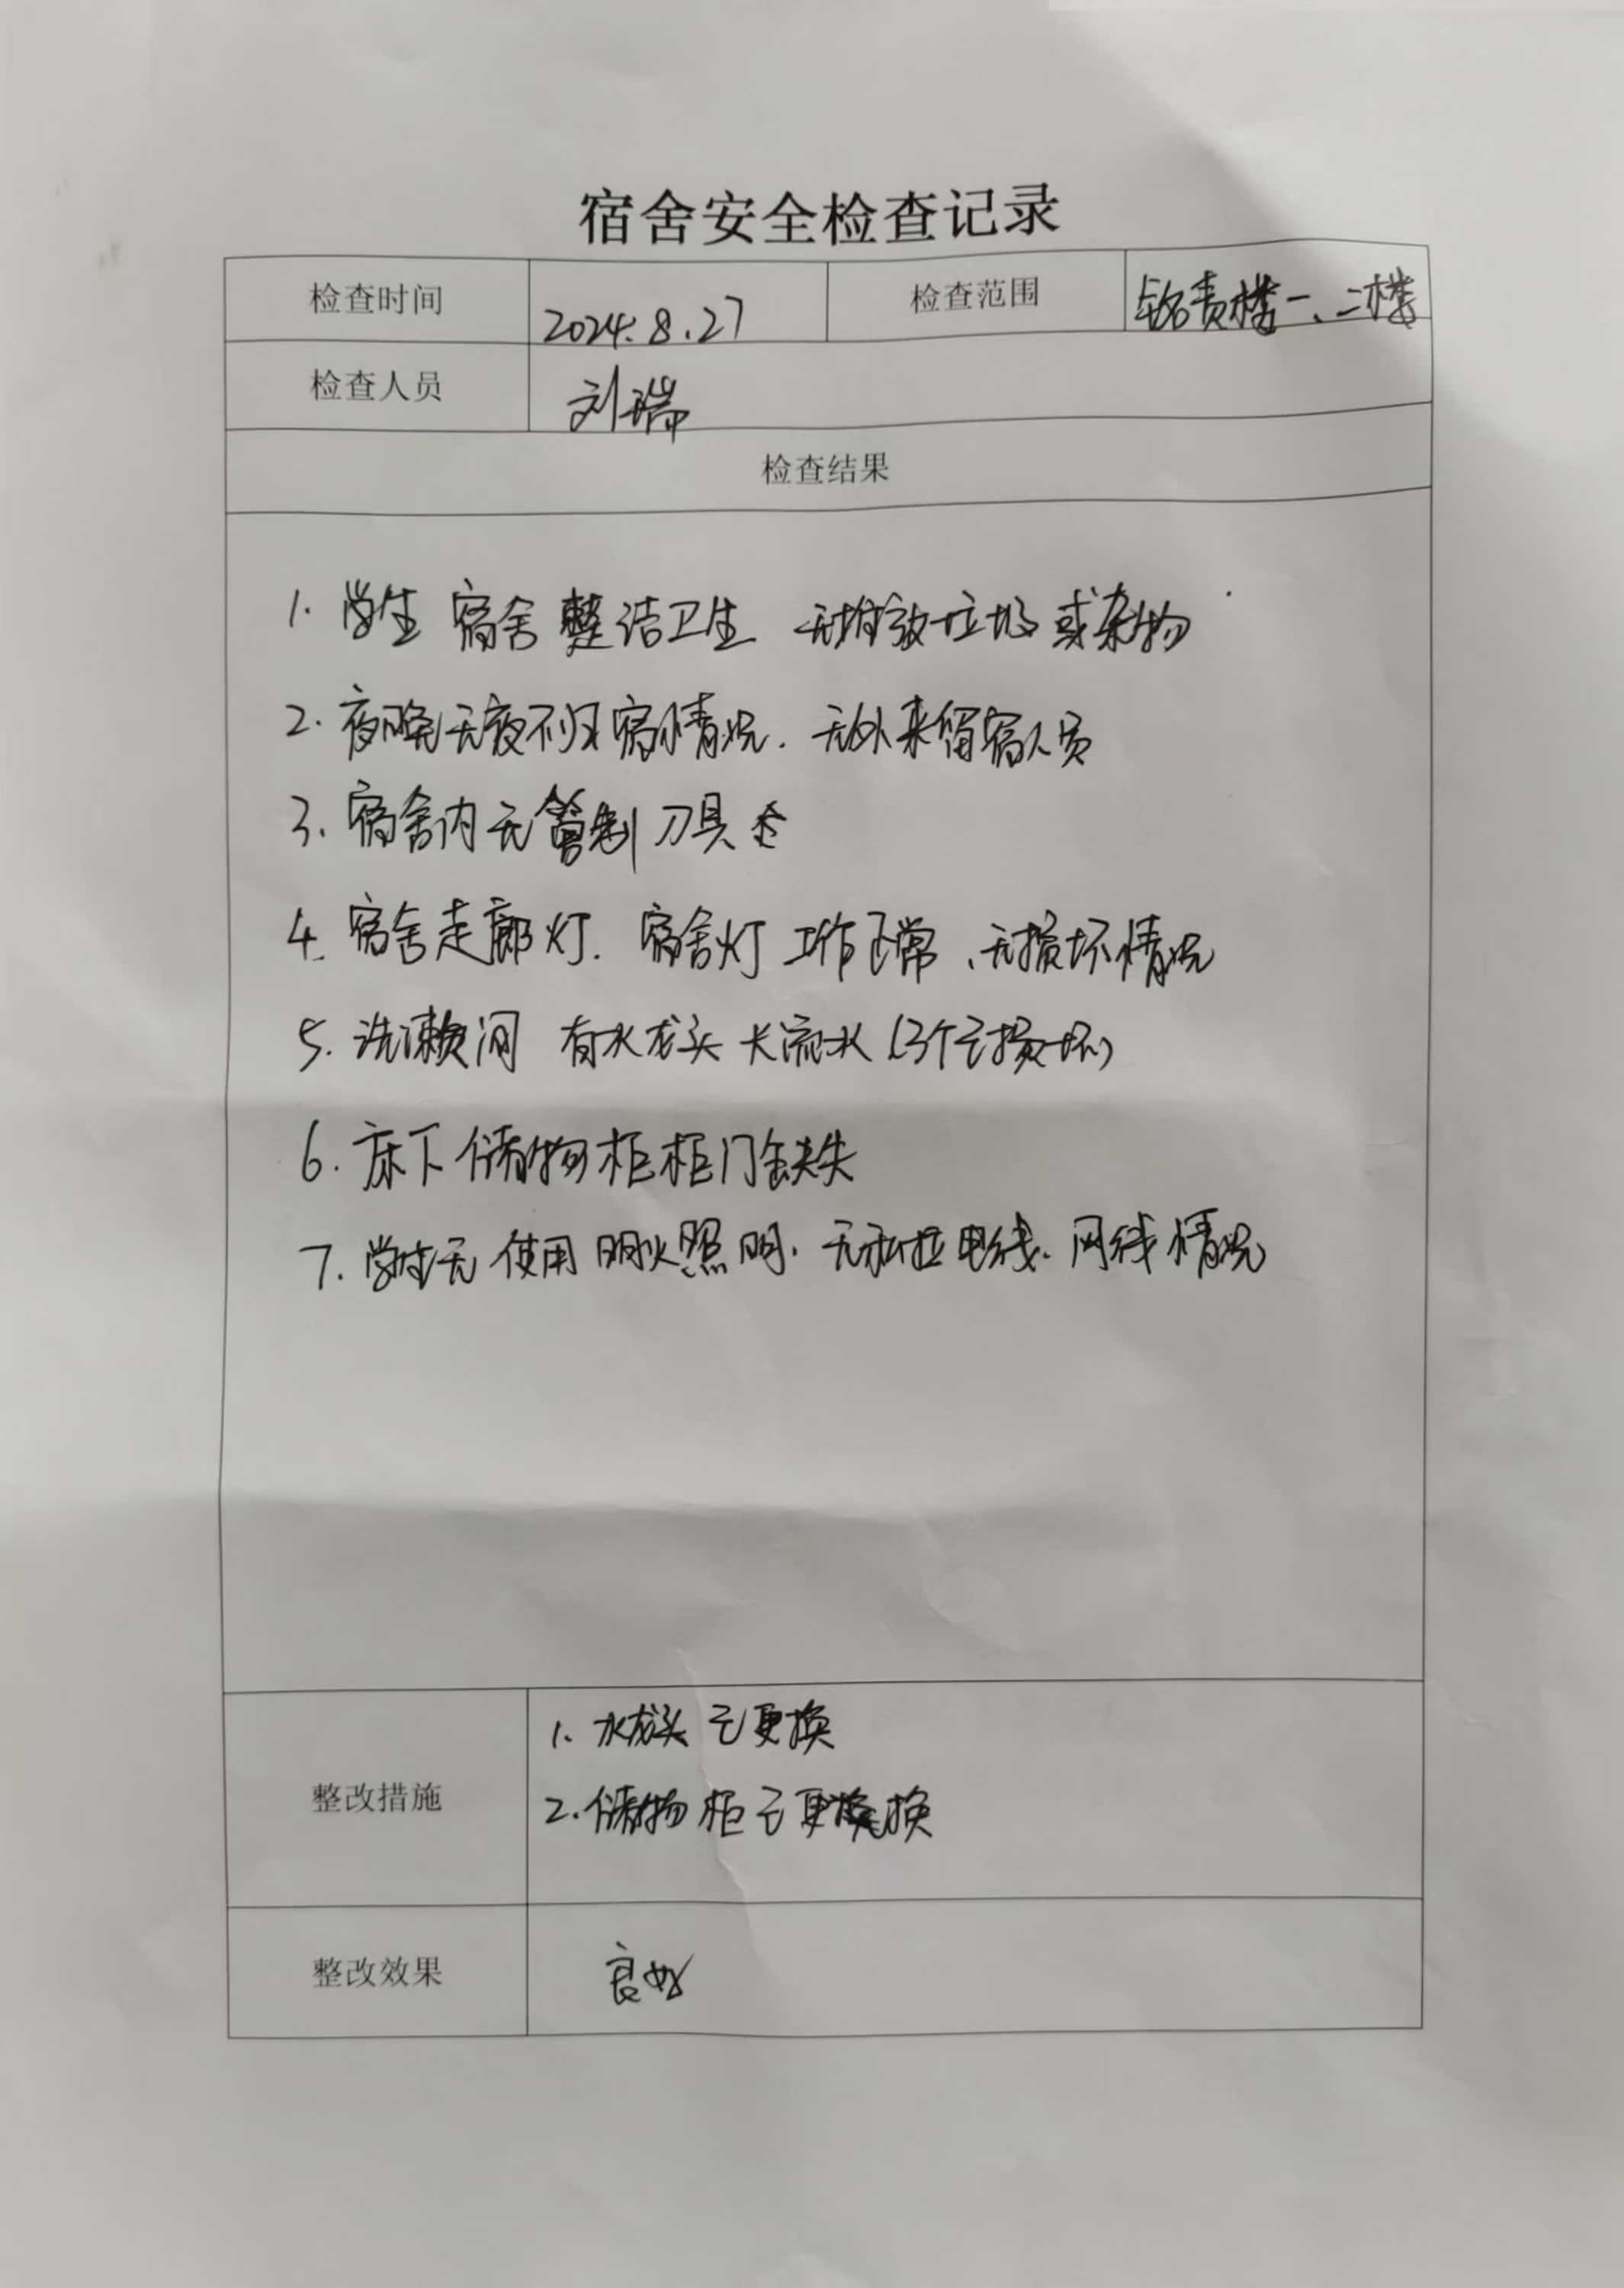 宿舍安全检查记录
检查时间 2024.8.27 检查范围 铭责楼一、二楼
检查人员 刘瑞
检查结果
1. 学生宿舍整洁卫生 无堆放垃圾或杂物
2. 夜晚无夜不归宿情况. 无外来留宿人员
3. 宿舍内无管制刀具
4. 宿舍走廊灯. 宿舍灯工作正常、无损坏情况
5. 洗漱间 有水龙头长流水(3个已损坏)
6. 床下储物柜柜门缺失
7. 学生无使用明火照明. 无私拉电线. 网线情况
整改措施
1. 水龙头已更换
2. 储物柜已更换
整改效果 良好